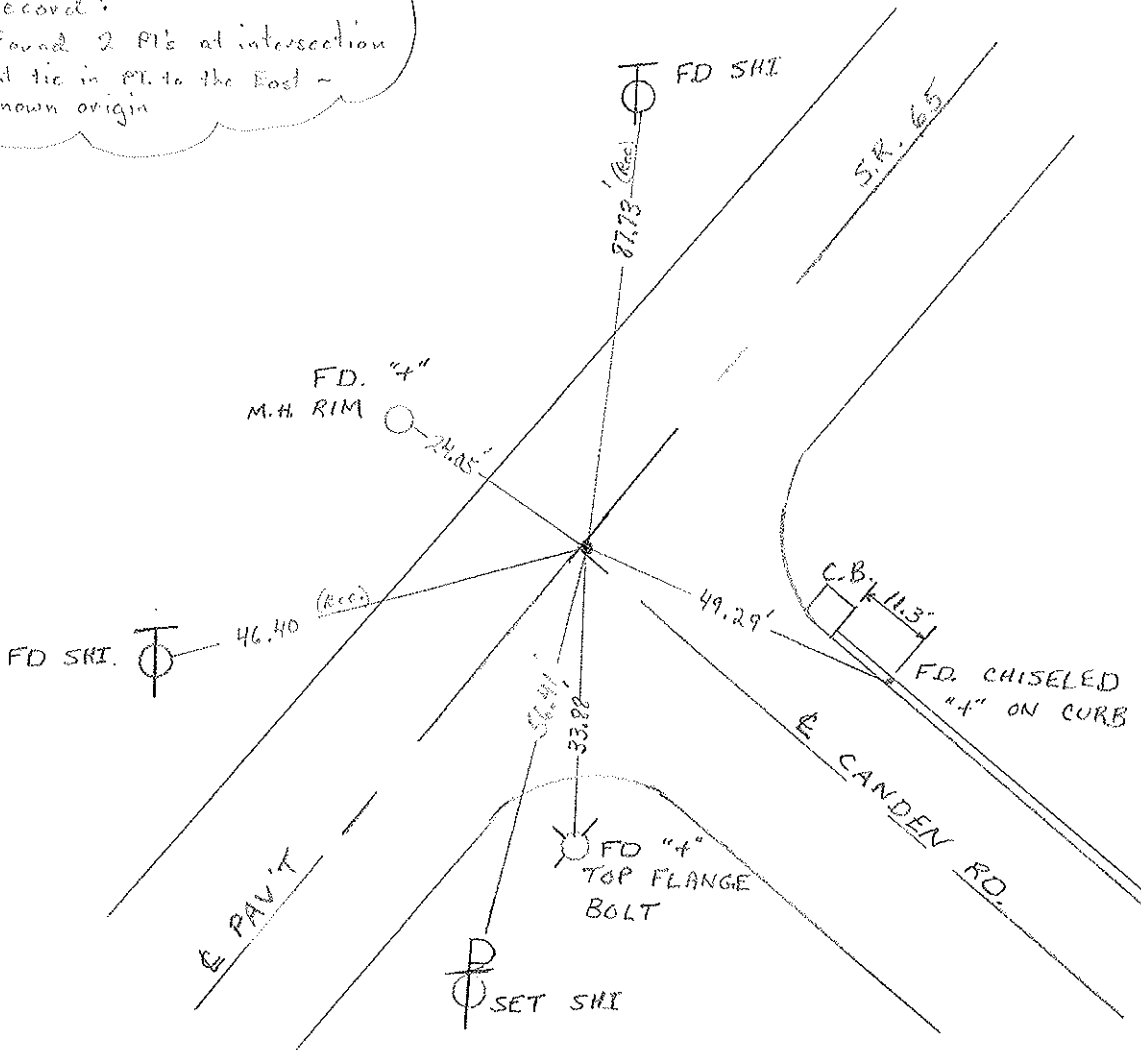 ecord:
Found 2 PI's at intersection
tie in PI. to the East ~
nown origin
FD SHI
S.R. 65
87.73' (Rec)
FD. "+"
M.H. RIM
24.05'
C.B.
11.3'
(Rec.)
46.40
49.29'
FD SHI.
FD. CHISELED
"+" ON CURB
33.88'
℄ CANDEN RD.
FD "+"
TOP FLANGE
BOLT
℄ PAV'T
SET SHI